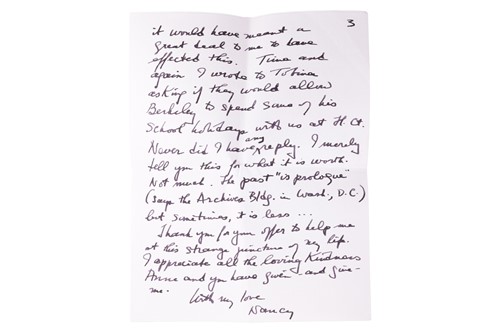 3
it would have meant a
great deal to me to have
effected this. Time and
again I wrote to Tobina
asking if they would allow
Berkeley to spend some of his
School holidays with us at H. Ct.
any
Never did I have reply. I merely
tell you this for what it is worth.
Not much. The past "is prologue"
(says the Archives Bldg. in Wash., D.C.)
but sometimes, it is less ...
Thank you for your offer to help me
at this strange juncture of my life.
I appreciate all the loving Kindness
Anne and you have given and give
me.
With my love
Nancy